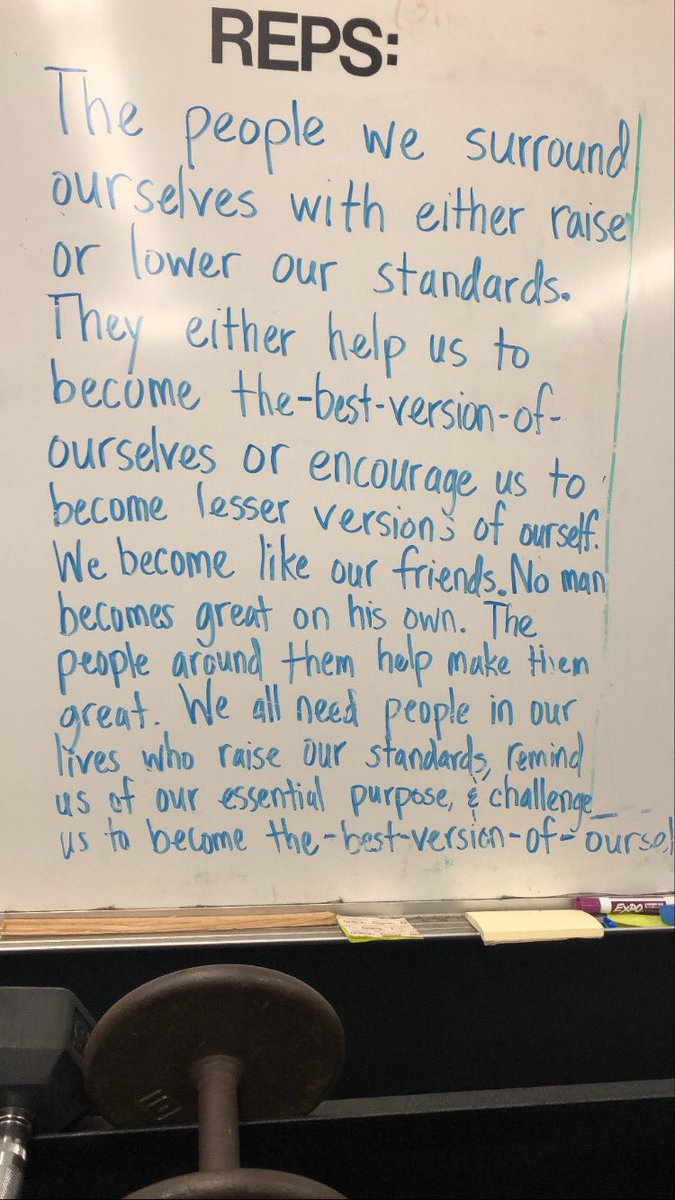 REPS:
The people we surround
ourselves with either raise
or lower our standards.
They either help us to
become the-best-version-of-
ourselves or encourage us to
become lesser versions of ourself.
We become like our friends. No man
becomes great on his own. The
people around them help make them
great. We all need people in our
lives who raise our standards, remind
us of our essential purpose, & challenge
us to become the-best-version-of-oursel
EXPO